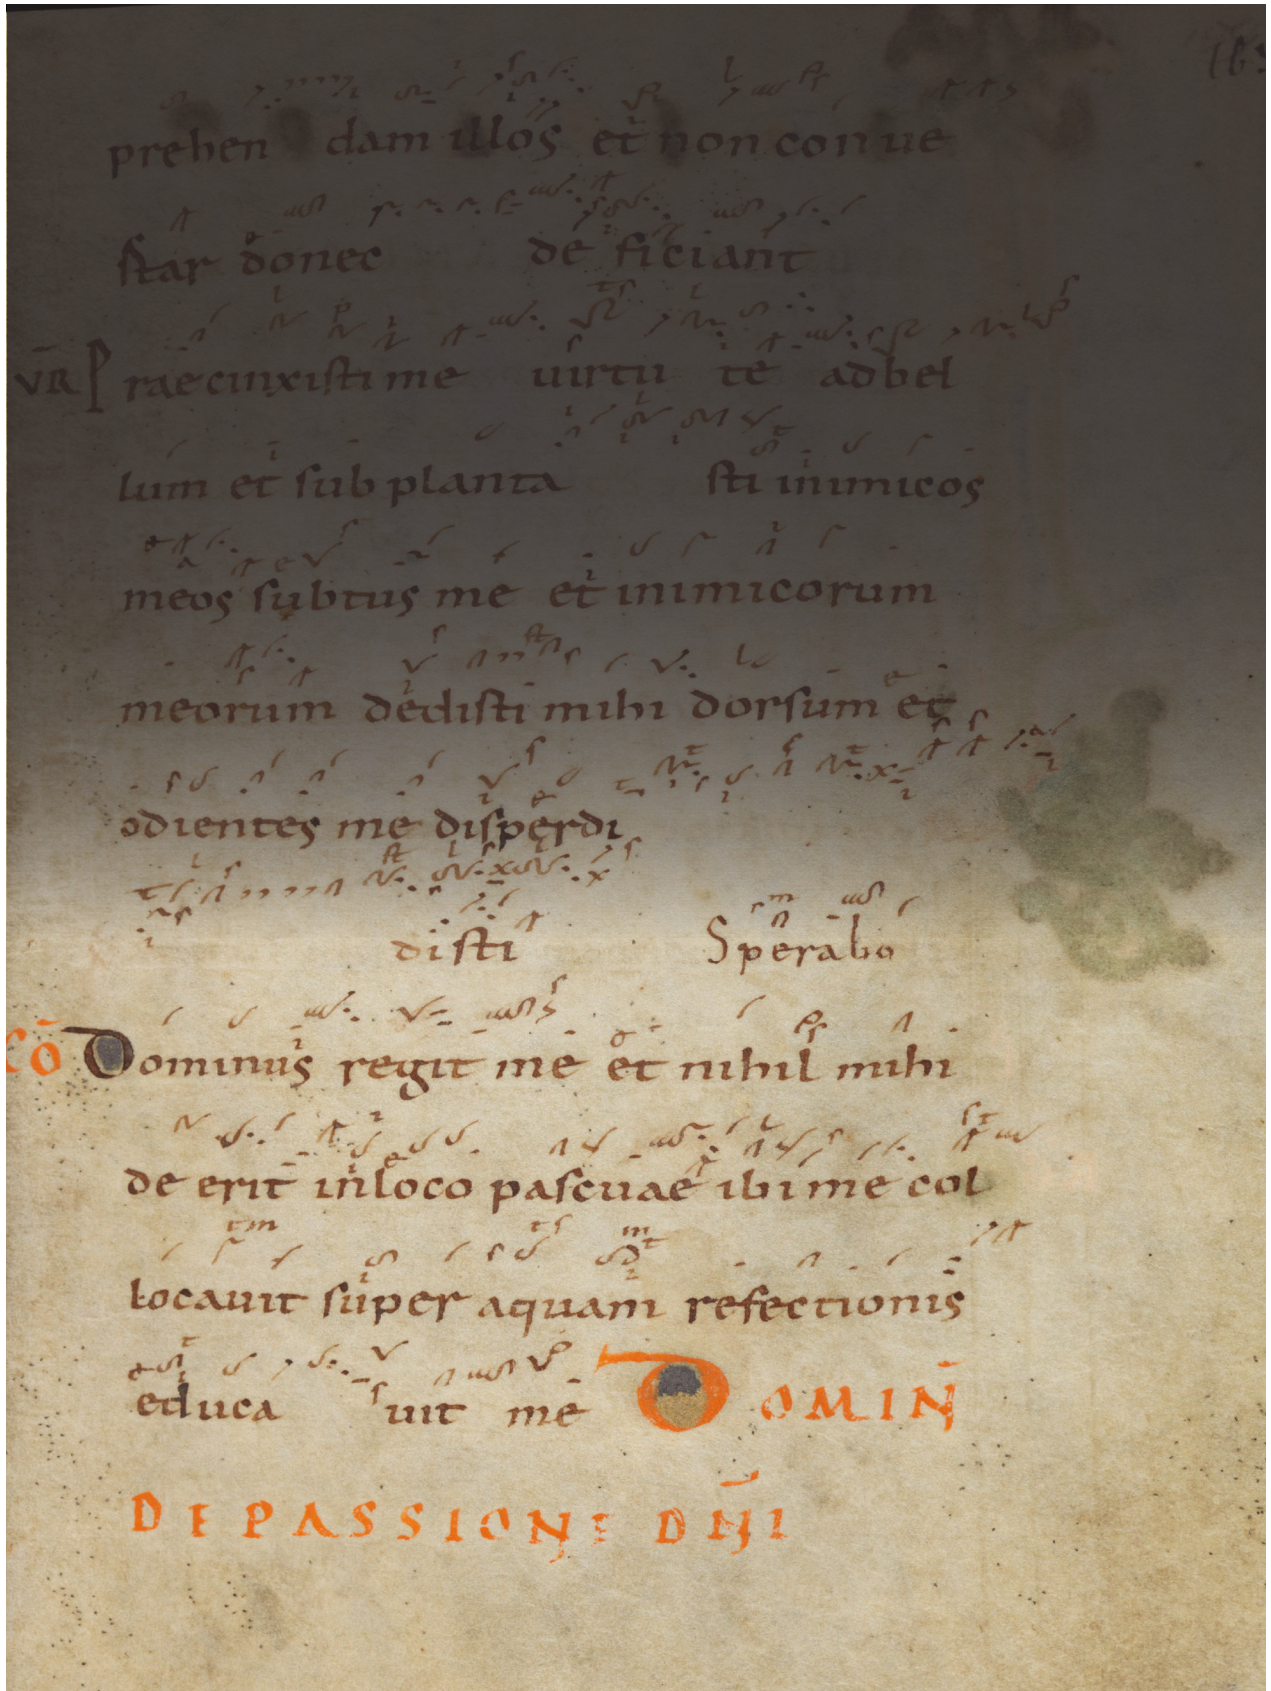 prehen dam illos et non conue
star donec de ficiant
VR Praecinxisti me uirtu te ad bel
lum et sub planta sti inimicos
meos subtus me et inimicorum
meorum dedisti mihi dorsum et
odientes me disperdi
disti Sperabo
CO Dominus regit me et nihil mihi
de erit in loco pascuae ibi me col
locauit super aquam refectionis
educa uit me DOMIN
DE PASSIONE DNI